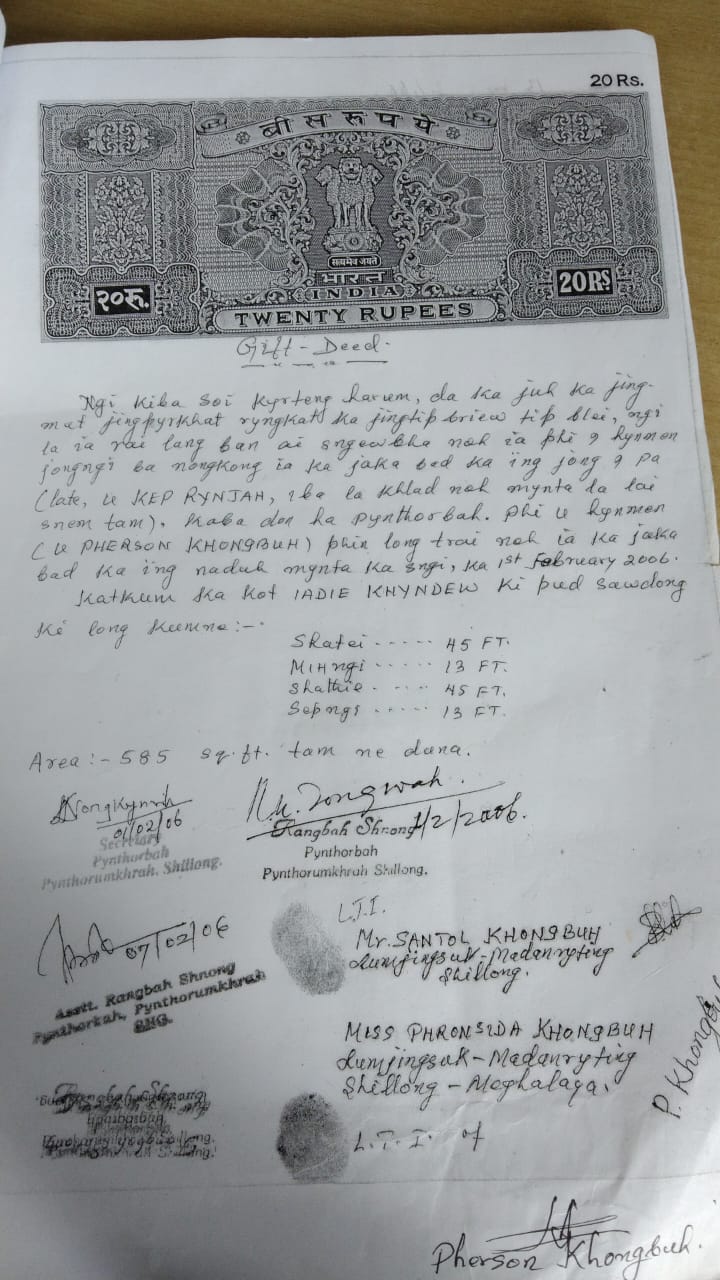 20 Rs.
बीस रुपये
सत्यमेव जयते
भारत
INDIA
२०रू.
20RS
TWENTY RUPEES
Gift-Deed.
Ngi kiba soi kyrteng harum, da ka juh ka jing-
mut jingpyrkhat ryngkat ka jingtip briew tip blei, ngi
la ia rai lang ban ai sngewbha noh ia phi u hynmen
jongngi ba nongkong ia ka jaka bad ka ing jong u pa
(late, u KEP RYNJAH, iba la khlad noh mynta la lai
snem tam). Kaba don ha Pynthorbah. Phi u hynmen
(u PHERSON KHONGBUH) phin long trai noh ia ka jaka
bad ka ing naduh mynta ka sngi, ka 1st February 2006.
Katkum ka kot IADIE KHYNDEW ki pud sawdong
ki long kumne:-
Shatei ..... 45 FT.
MIHngi ..... 13 FT.
Shathie ..... 45 FT.
Sepngi ..... 13 FT.
Area:- 585 sq.ft. tam ne duna.
01/02/06
Secretary
Pynthorbah
Pynthorumkhrah, Shillong.
1/2/2006.
Rangbah Shnong
Pynthorbah
Pynthorumkhrah Shillong.
07/02/06
Asstt. Rangbah Shnong
Pynthorbah, Pynthorumkhrah
SHG.
L.T.I.
Mr. SANTOL KHONGBUH
Lumjingsuk-Madanryting
Shillong.
MISS PHRONSIDA KHONGBUH
Lumjingsuk-Madanryting
Shillong-Meghalaya.
L.T.I. of
Pherson Khongbuh.